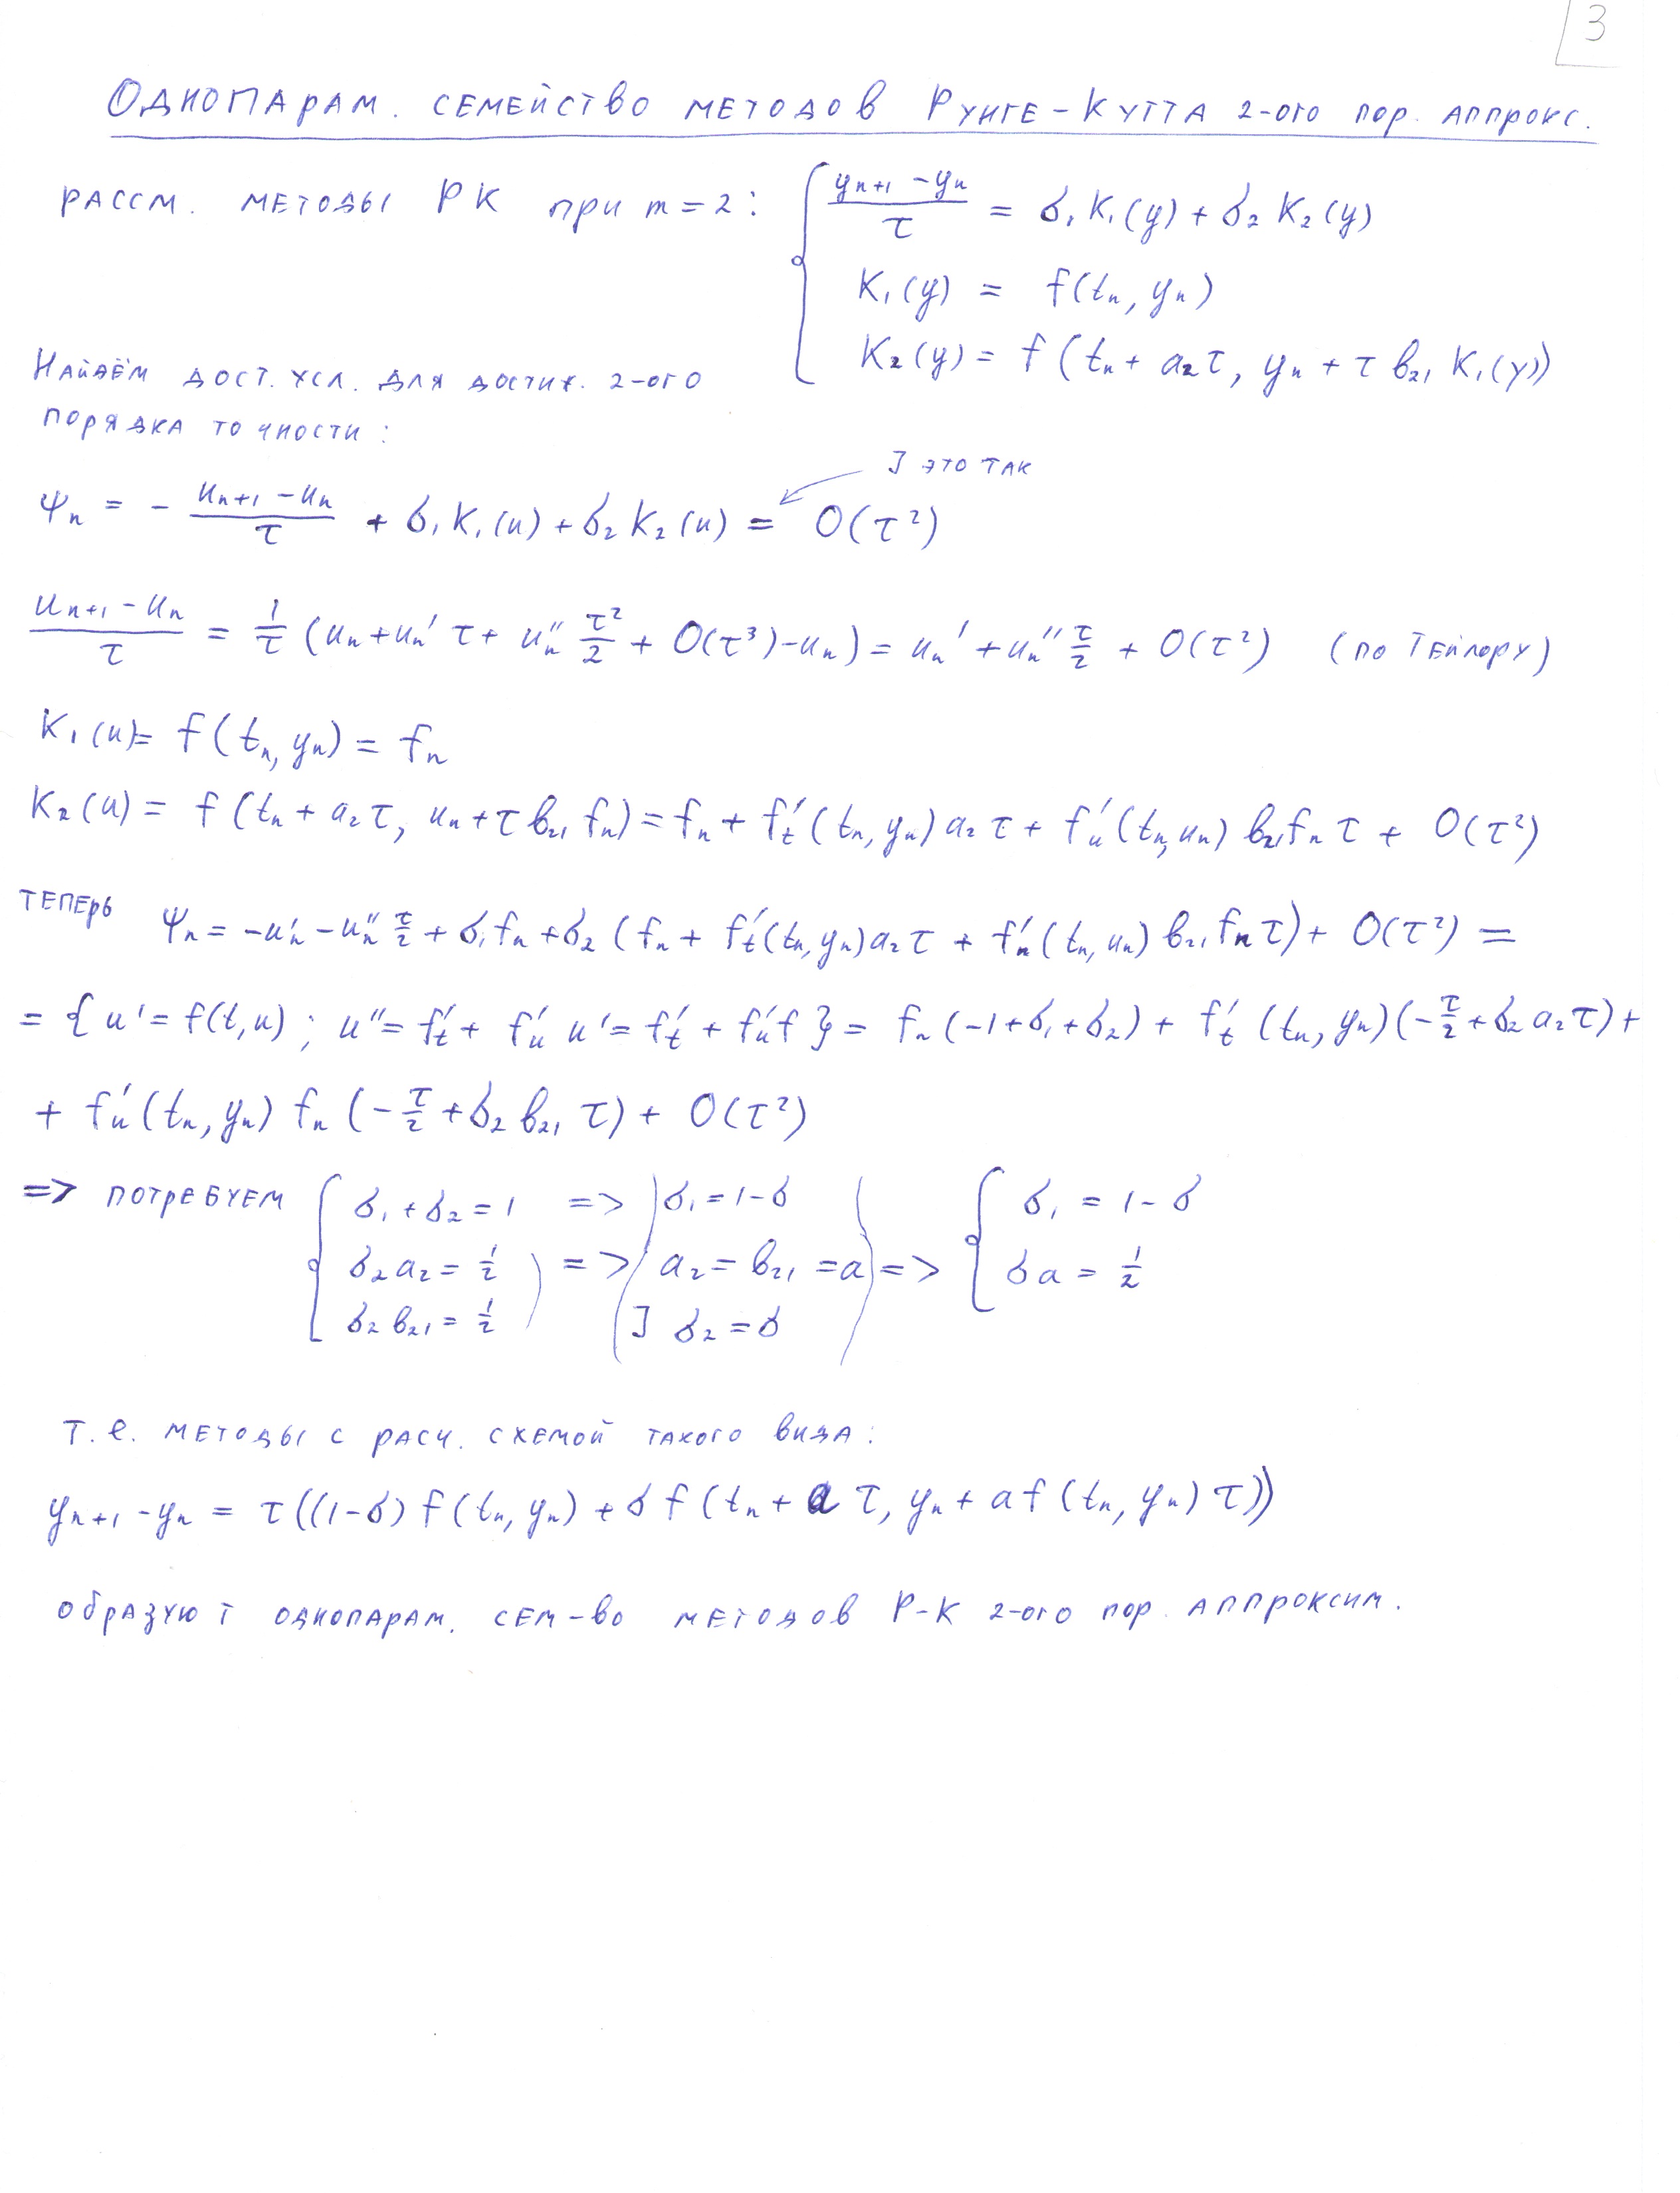 3
Однопарам. семейство методов Рунге-Кутта 2-ого пор. аппрокс.
Рассм. методы РК при m = 2: { (yₙ₊₁ - yₙ)/τ = σ₁ K₁(y) + σ₂ K₂(y)
K₁(y) = f(tₙ, yₙ)
K₂(y) = f(tₙ + a₂τ, yₙ + τ b₂₁ K₁(y))
Найдём дост. усл. для достиж. 2-ого
порядка точности:
] это так
ψₙ = - (uₙ₊₁ - uₙ)/τ + σ₁ K₁(u) + σ₂ K₂(u) = O(τ²)
(uₙ₊₁ - uₙ)/τ = 1/τ (uₙ + uₙ' τ + uₙ'' τ²/2 + O(τ³) - uₙ) = uₙ' + uₙ'' τ/2 + O(τ²) (по Тейлору)
K₁(u) = f(tₙ, yₙ) = fₙ
K₂(u) = f(tₙ + a₂τ, uₙ + τ b₂₁ fₙ) = fₙ + f'ₜ(tₙ, yₙ) a₂ τ + f'ᵤ(tₙ, uₙ) b₂₁ fₙ τ + O(τ²)
Теперь ψₙ = -u'ₙ - u''ₙ τ/2 + σ₁ fₙ + σ₂ (fₙ + f'ₜ(tₙ, yₙ) a₂ τ + f'ᵤ(tₙ, uₙ) b₂₁ fₙ τ) + O(τ²) =
= { u' = f(t, u) ; u'' = f'ₜ + f'ᵤ u' = f'ₜ + f'ᵤ f } = fₙ (-1 + σ₁ + σ₂) + f'ₜ (tₙ, yₙ) (-τ/2 + σ₂ a₂ τ) +
+ f'ᵤ(tₙ, yₙ) fₙ (-τ/2 + σ₂ b₂₁ τ) + O(τ²)
=> потребуем { σ₁ + σ₂ = 1 => σ₁ = 1 - σ { σ₁ = 1 - σ
σ₂ a₂ = 1/2 ) => a₂ = b₂₁ = a => σ a = 1/2
σ₂ b₂₁ = 1/2 ] σ₂ = σ
т.е. методы с расч. схемой такого вида:
yₙ₊₁ - yₙ = τ((1-σ) f(tₙ, yₙ) + σ f(tₙ + a τ, yₙ + a f(tₙ, yₙ) τ))
образуют однопарам. сем-во методов Р-К 2-ого пор. аппроксим.